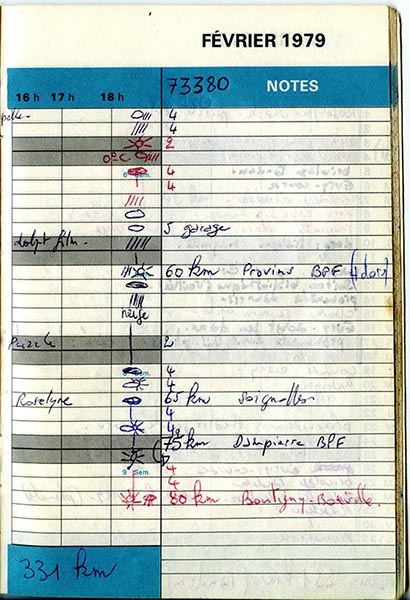 FÉVRIER 1979
16 h 17 h 18 h 73380 NOTES
4
4
2
0°C
6e Sem. 4
4
5 garage
film.
60 km Provins BPF
neige
Puzzle 2
4
4
Roselyne 65 km
4
75 km Dampierre BPF
9e Sem. 4
4
80 km Boutigny
331 km